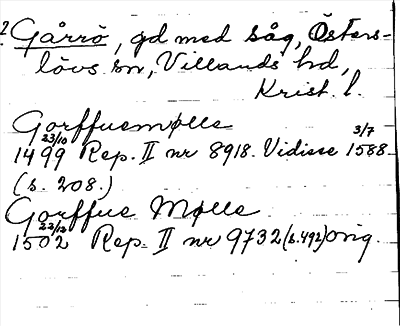 ? Gårrö, gd med såg, Östers-
lövs sn, Villands hd,
Krist. l.
Gorffuemølle
23/10 3/7
1499 Rep. II nr 8918. Vidisse 1588
(s. 208.)
Gorffue Mølle
22/12
1502 Rep. II nr 9732 (s. 492) orig.